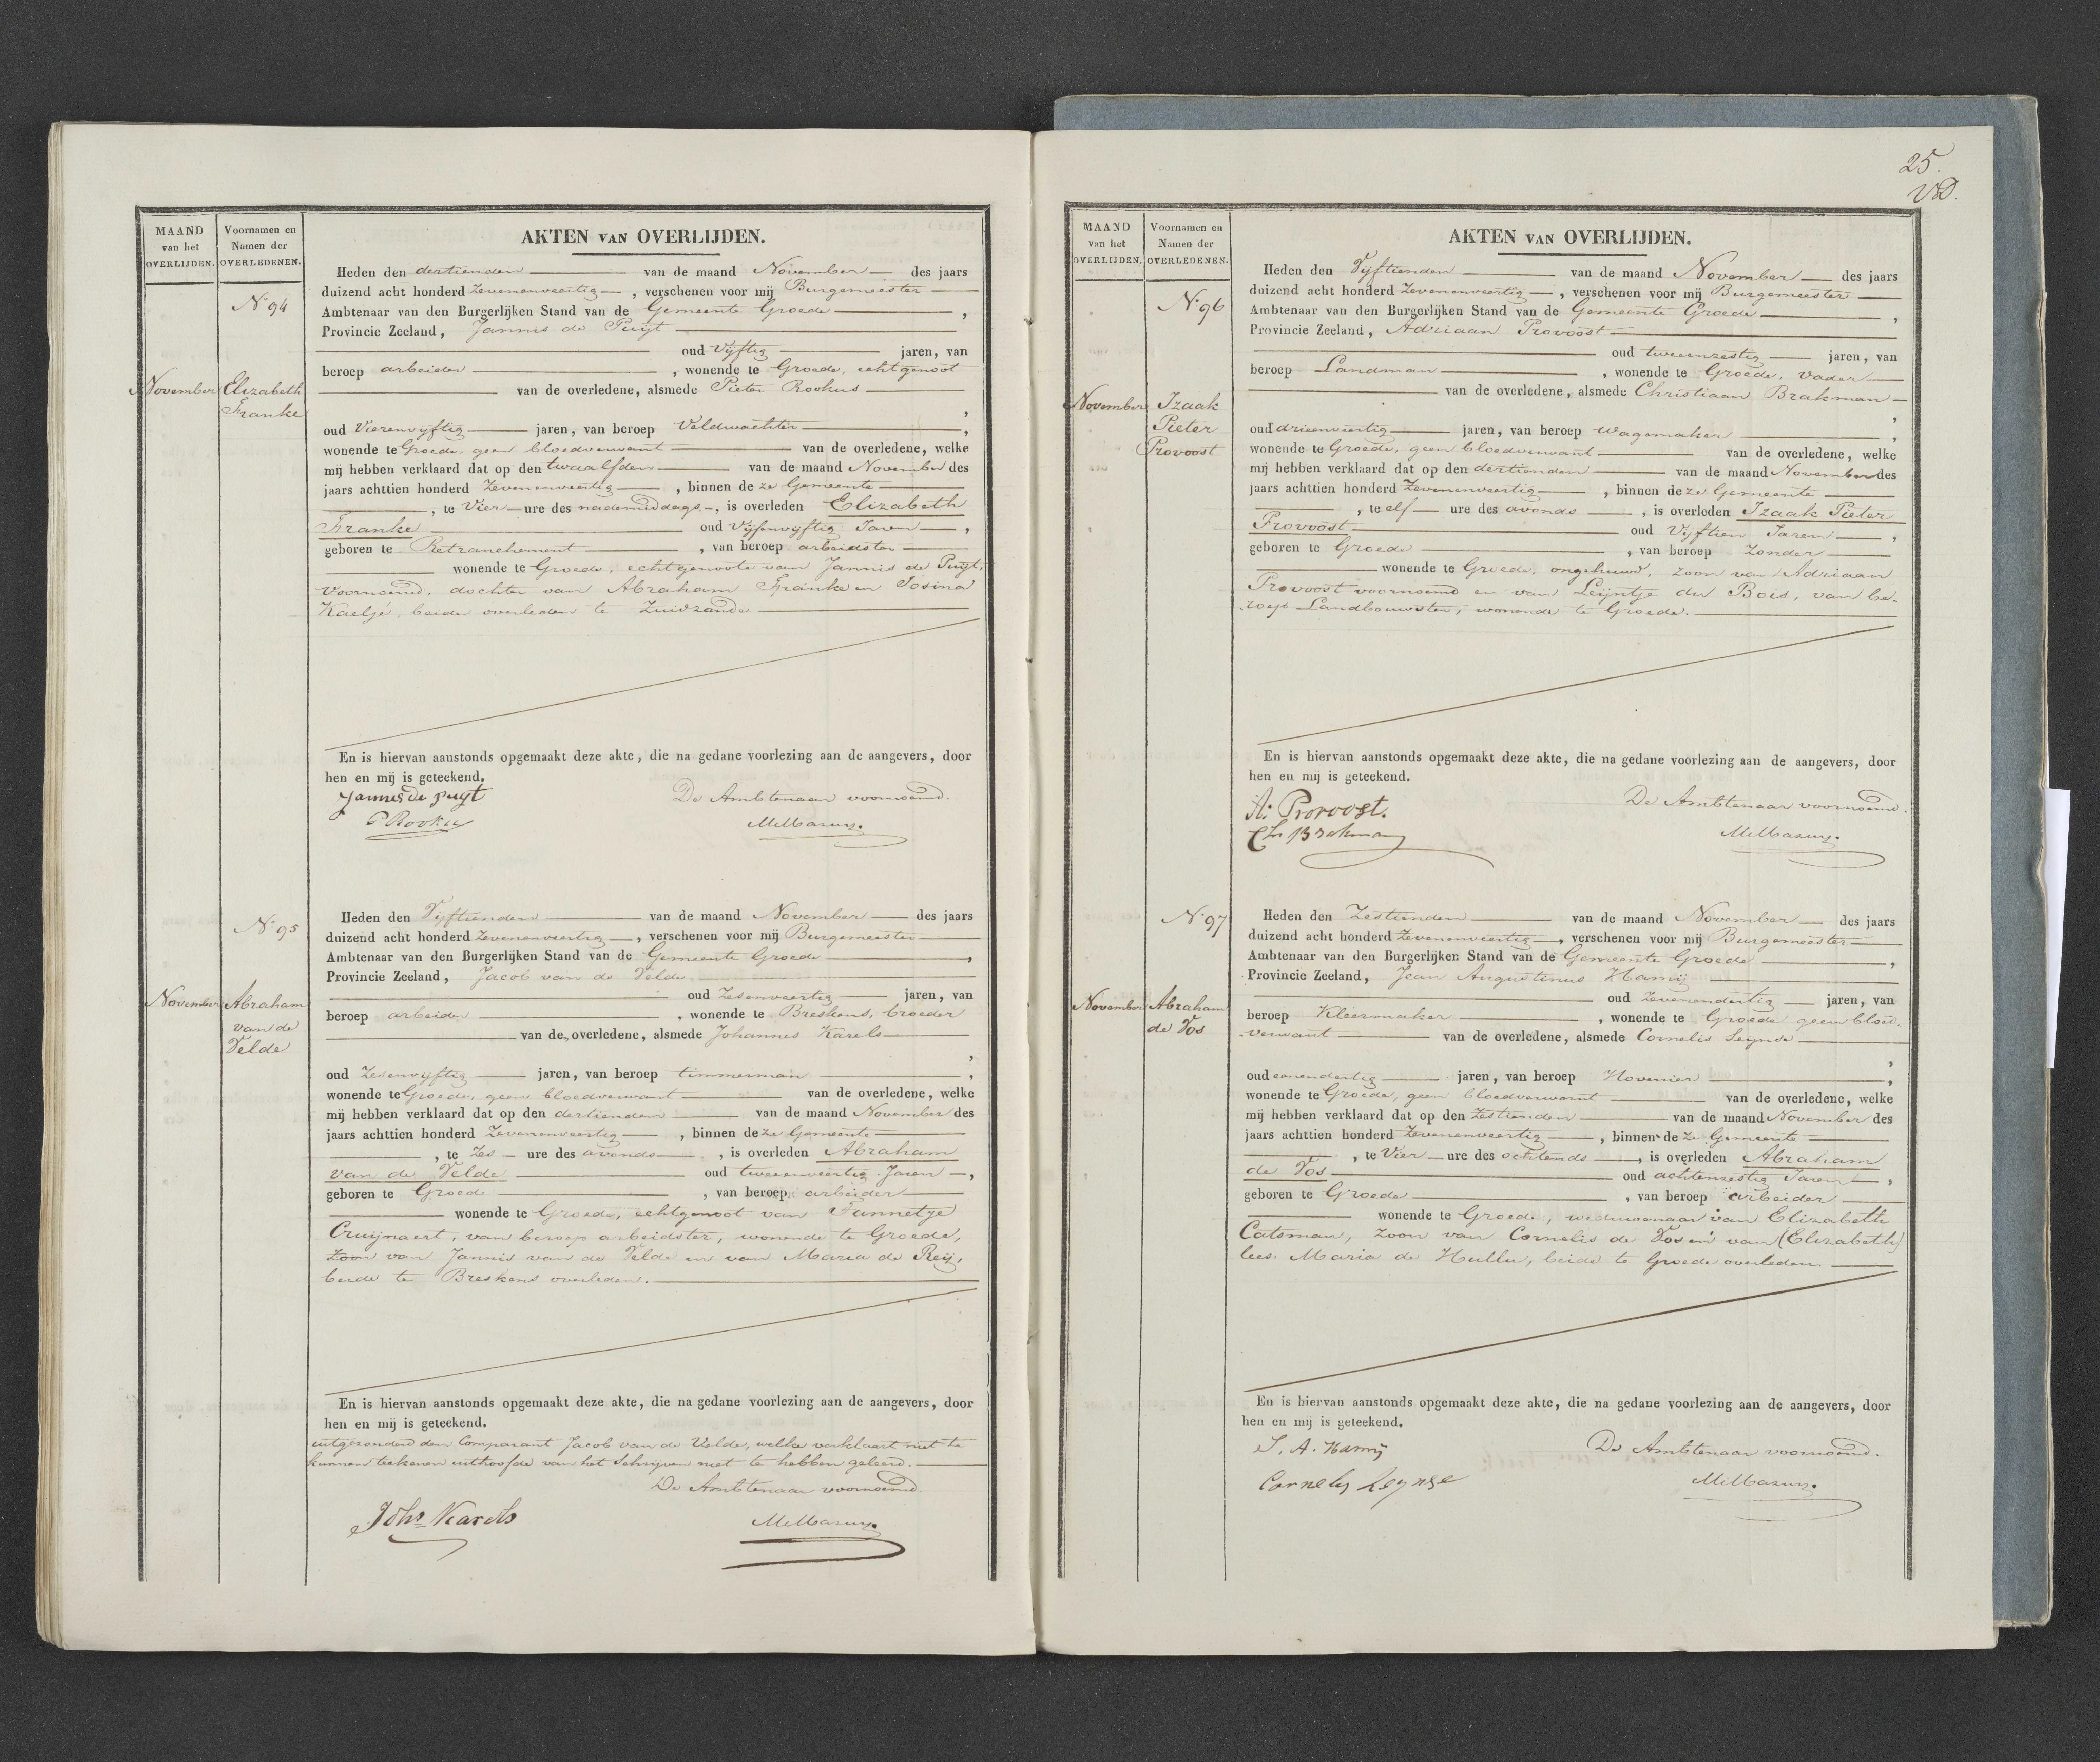 MAAND
van het
OVERLIJDEN.
Voornamen en
Namen der
OVERLEDENEN.
AKTEN VAN OVERLIJDEN.
No 94
November
Elizabeth
Franke
Heden den dertienden van de maand November des jaars
duizend acht honderd Zevenenveertig, verschenen voor mij Burgemeester
Ambtenaar van den Burgerlijken Stand van de Gemeente Groede,
Provincie Zeeland, Jannis de Puijt
oud Vijftig jaren, van
beroep arbeider, wonende te Groede, echtgenoot
van de overledene, alsmede Pieter Rookus
,
oud Vierenvyftig jaren, van beroep Veldwachter,
wonende te Groede, geen bloedverwant van de overledene, welke
mij hebben verklaard dat op den twaalfden van de maand November des
jaars achttien honderd Zevenenveertig, binnen deze Gemeente
, te Vier ure des nademiddags, is overleden Elizabeth
Franke oud Vijfenvyftig Jaren,
geboren te Retranchement, van beroep arbeidster
wonende te Groede, echtgenoote van Jannis de Puijt,
voornoemd, dochter van Abraham Franke en Josina
Kaeljé, beide overleden te Zuidzande
En is hiervan aanstonds opgemaakt deze akte, die na gedane voorlezing aan de aangevers, door
hen en mij is geteekend.
Jannes de puyt
P Rookus
De Ambtenaar voornoemd.
No 95
November
Abraham
van de
Velde
Heden den Vijftienden van de maand November des jaars
duizend acht honderd Zevenenveertig, verschenen voor mij Burgemeester
Ambtenaar van den Burgerlijken Stand van de Gemeente Groede,
Provincie Zeeland, Jacob van de Velde
oud Zesenveertig jaren, van
beroep arbeider, wonende te Breskens, broeder
van de overledene, alsmede Johannes Karels
,
oud Zesenvyftig jaren, van beroep timmerman,
wonende te Groede, geen bloedverwant van de overledene, welke
mij hebben verklaard dat op den dertienden van de maand November des
jaars achttien honderd Zevenenveertig, binnen deze Gemeente
, te Zes ure des avonds, is overleden Abraham
van de Velde oud tweeenveertig Jaren,
geboren te Groede, van beroep arbeider
wonende te Groede, echtgenoot van Pannetje
Cruijnaert, van beroep arbeidster, wonende te Groede,
Zoon van Jannis van de Velde en van Maria de Reij,
beide te Breskens overleden.
En is hiervan aanstonds opgemaakt deze akte, die na gedane voorlezing aan de aangevers, door
hen en mij is geteekend.
uitgezonderd den Comparant Jacob van de Velde, welke verklaart niet te
kunnen teekenen uithoofde van het Schrijven niet te hebben geleerd.
De Ambtenaar voornoemd.
Johs Karels
25.
VD.
MAAND
van het
OVERLIJDEN.
Voornamen en
Namen der
OVERLEDENEN.
AKTEN VAN OVERLIJDEN.
No 96
November
Izaak
Pieter
Provoost
Heden den Vijftienden van de maand November des jaars
duizend acht honderd Zevenenveertig, verschenen voor mij Burgemeester
Ambtenaar van den Burgerlijken Stand van de Gemeente Groede,
Provincie Zeeland, Adriaan Provoost
oud tweeenzestig jaren, van
beroep Landman, wonende te Groede, vader
van de overledene, alsmede Christiaan Brakman
,
oud drieenveertig jaren, van beroep wagemaker,
wonende te Groede, geen bloedverwant van de overledene, welke
mij hebben verklaard dat op den dertienden van de maand November des
jaars achttien honderd Zevenenveertig, binnen deze Gemeente
, te elf ure des avonds, is overleden Izaak Pieter
Provoost oud Vijftien Jaren,
geboren te Groede, van beroep Zonder
wonende te Groede, ongehuwd, zoon van Adriaan
Provoost voornoemd en van Leijntje du Bois, van be-
roep Landbouwster, wonende te Groede.
En is hiervan aanstonds opgemaakt deze akte, die na gedane voorlezing aan de aangevers, door
hen en mij is geteekend.
A: Provoost.
Chr Brakman
De Ambtenaar voornoemd.
No 97
November
Abraham
de Vos
Heden den Zestienden van de maand November des jaars
duizend acht honderd Zevenenveertig, verschenen voor mij Burgemeester
Ambtenaar van den Burgerlijken Stand van de Gemeente Groede,
Provincie Zeeland, Jean Augustinus Hamij
oud Zevenendertig jaren, van
beroep Kleermaker, wonende te Groede geen bloed-
verwant van de overledene, alsmede Cornelis Leijnse
,
oud eenendertig jaren, van beroep Hovenier,
wonende te Groede, geen bloedverwant van de overledene, welke
mij hebben verklaard dat op den Zestienden van de maand November des
jaars achttien honderd Zevenenveertig, binnen deze Gemeente
, te Vier ure des ochtends, is overleden Abraham
de Vos oud achtenzestig Jaren,
geboren te Groede, van beroep arbeider
wonende te Groede, weduwenaar van Elizabeth
Catsman, Zoon van Cornelis de Vos en van (Elizabeth)
lees Maria de Hullu, beide te Groede overleden.
En is hiervan aanstonds opgemaakt deze akte, die na gedane voorlezing aan de aangevers, door
hen en mij is geteekend.
J. A. Hamij
Cornelis Leynse
De Ambtenaar voornoemd.